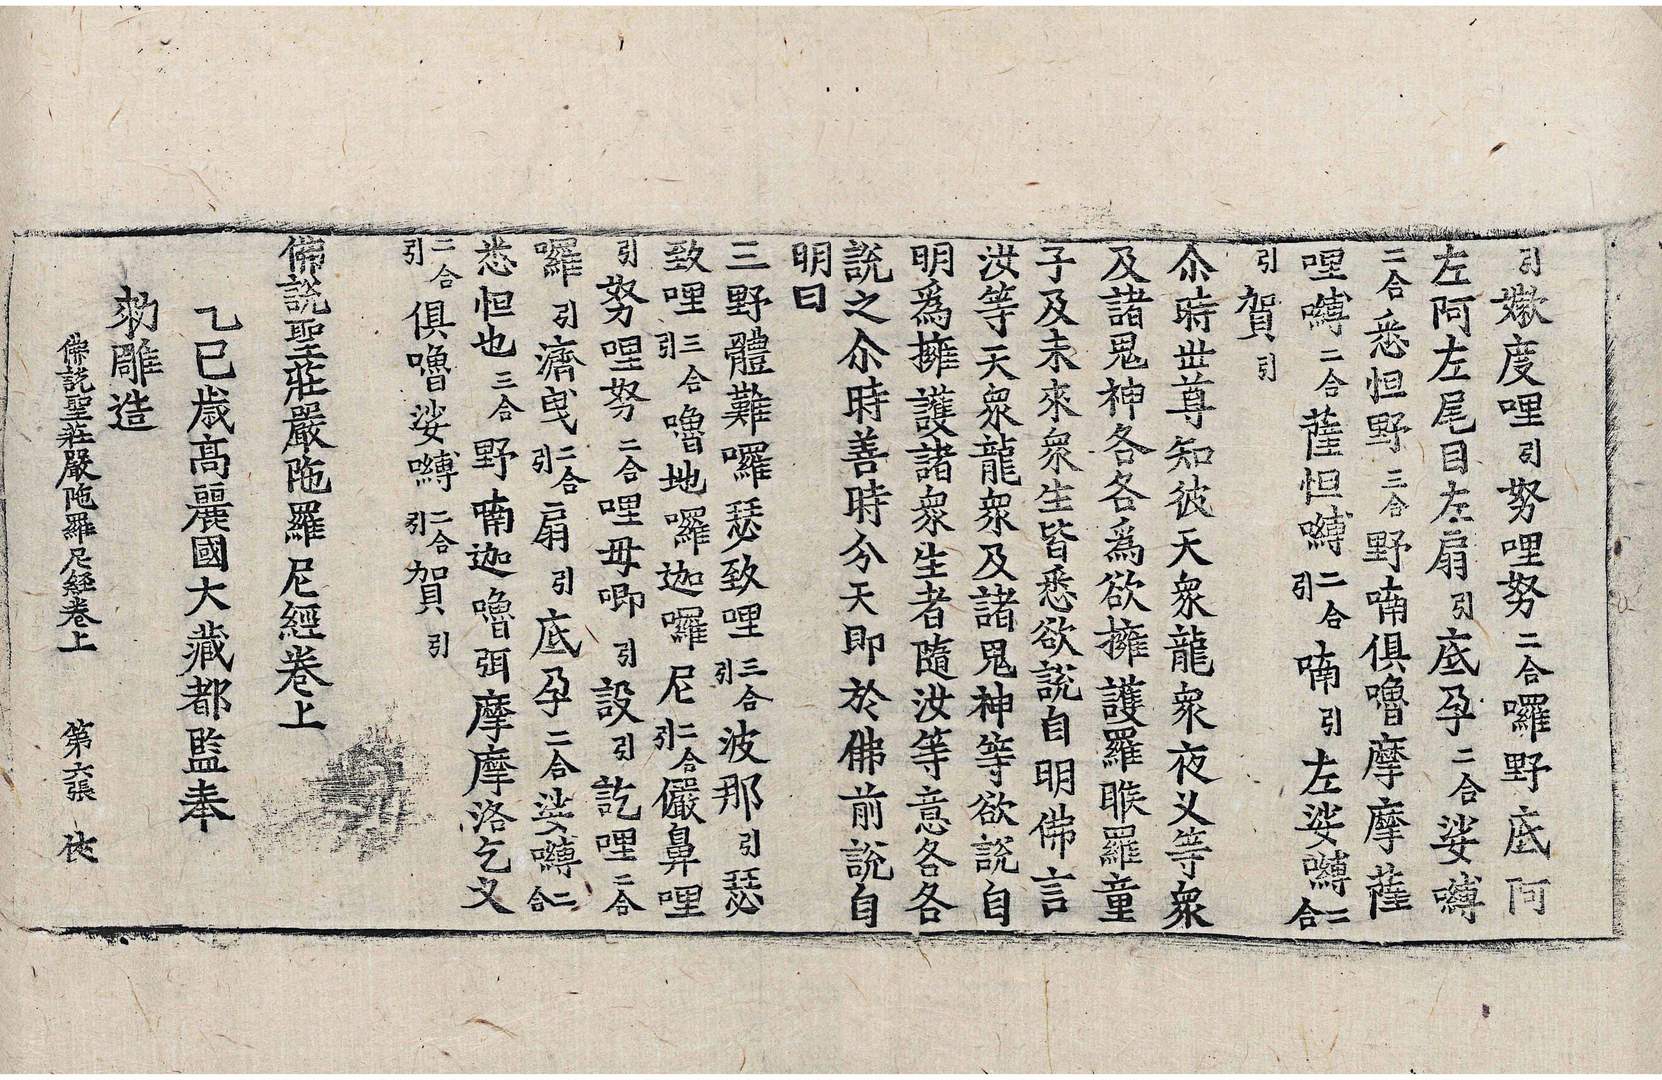 引嫰度哩引努哩努二合囉野底阿
左阿左尾目左扇引底孕二合娑嚩
二合悉怛野三合野喃俱嚕摩摩薩
哩嚩二合薩怛嚩二合引喃引左娑嚩二合
引賀引
尒時世尊知彼天衆龍衆夜叉等衆
及諸鬼神各各爲欲擁護羅睺羅童
子及未來衆生皆悉欲說自明佛言
汝等天衆龍衆及諸鬼神等欲說自
明爲擁護諸衆生者隨汝等意各各
說之尒時善時分天即於佛前說自
明曰
三野體難囉瑟致哩三合引波那引瑟
致哩三合引嚕地囉迦囉尼二合引儼鼻哩
引努哩努二合哩毋唧引設引訖哩二合
囉引濟曳二合引扇引底孕二合娑嚩二合
悉怛也三合野喃迦嚕弭摩摩洛乞叉
二合引俱嚕娑嚩二合引賀引
佛說聖莊嚴陁羅尼經卷上
乙巳歲高麗國大藏都監奉
勑雕造
佛說聖莊嚴陁羅尼經卷上 第六張